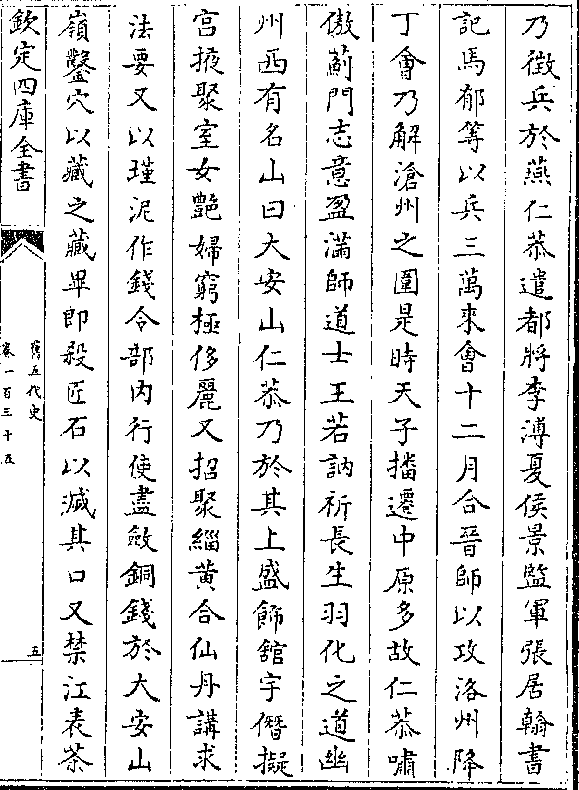 乃徴兵於燕仁恭遣都將李溥夏侯景監軍張居翰書
記馬郁等以兵三萬來會十二月合晉師以攻洺州降
丁會乃解滄州之圍是時天子播遷中原多故仁恭嘯
傲薊門志意盈滿師道士王若訥祈長生羽化之道幽
州西有名山曰大安山仁恭乃於其上盛飾舘宇僭擬
宫掖聚室女艷婦窮極侈麗又招聚緇黄合仙丹講求
法要又以墐泥作錢令部内行使盡斂銅錢於大安山
嶺鑿穴以藏之藏畢即殺匠石以滅其口又禁江表茶
欽定四庫全書
舊五代史
卷一百三十五
五